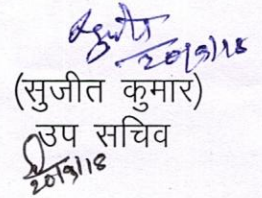 20/9/18
(सुजीत कुमार)
उप सचिव
20/9/18